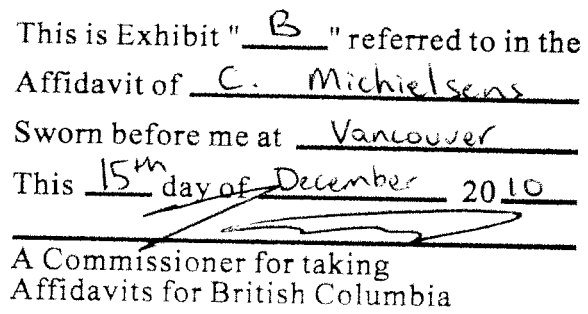 This is Exhibit "B" referred to in the
Affidavit of C. Michielsens
Sworn before me at Vancouver
This 15th day of December 2010
A Commissioner for taking
Affidavits for British Columbia